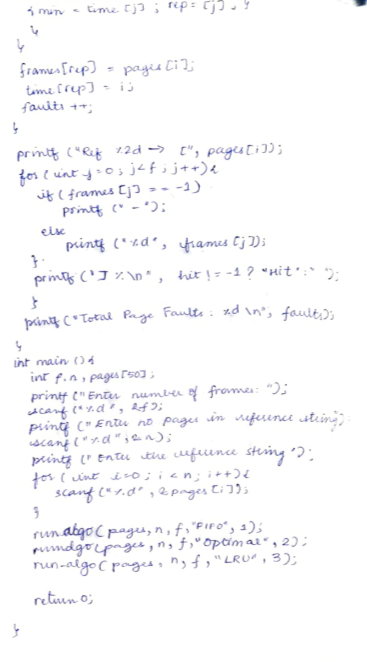 { min = time [j] ; rep = [j] ; }
}
}
frames[rep] = pages [i];
time [rep] = i;
faults ++;
}
printf ("Ref %2d → [", pages[i]);
for ( int j=0; j<f ; j++){
if ( frames [j] == -1)
printf (" - ");
else
printf (" %d", frames [j]);
}
printf ("] % \n", hit != -1 ? "Hit" : " ");
}
printf ("Total Page Faults : %d \n", faults);
}
int main () {
int f, n, pages [50] ;
printf ("Enter number of frames: ");
scanf ("%d", &f);
printf ("Enter no pages in reference string);
scanf ("%d", &n);
printf (" Enter the reference string ");
for ( int i=0 ; i < n; i++){
scanf ("%d", &pages [i]);
}
run_algo ( pages, n, f, "FIFO", 1);
run_algo (pages, n, f, "Optimal", 2);
run-algo ( pages, n, f, "LRU", 3);
return 0;
}